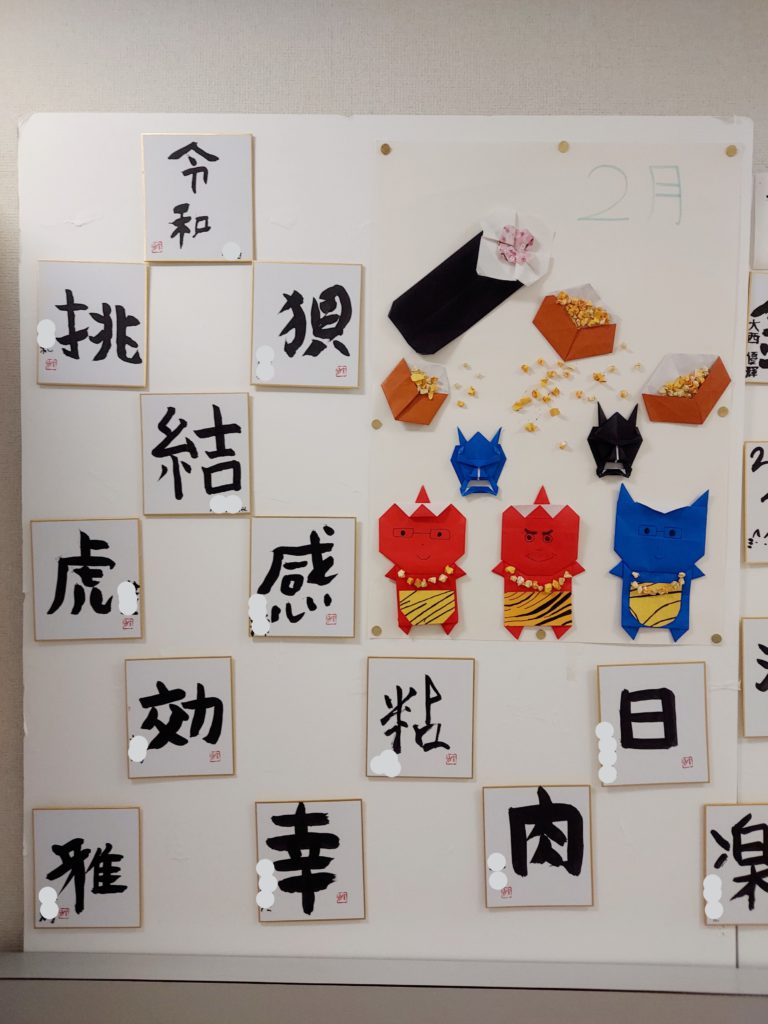 令和
2月
挑
狽
結
虎
感
効
粘
日
雅
幸
肉
楽
大西優輝